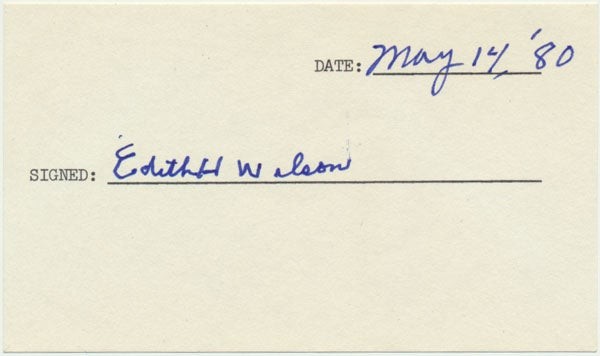 DATE: May 14, '80
SIGNED: Edith H Wilson